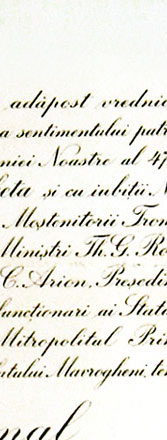 adăpost vrednic
a sentimentului patr
niei Noastre al 47
eta și cu iubiții N
Moștenitorii Tron
Miniștri Th. G. Ro
C. Arion, Președin
funcționari ai Statu
Mitropolitul Pri
atului Mavrogheni, lo
nal